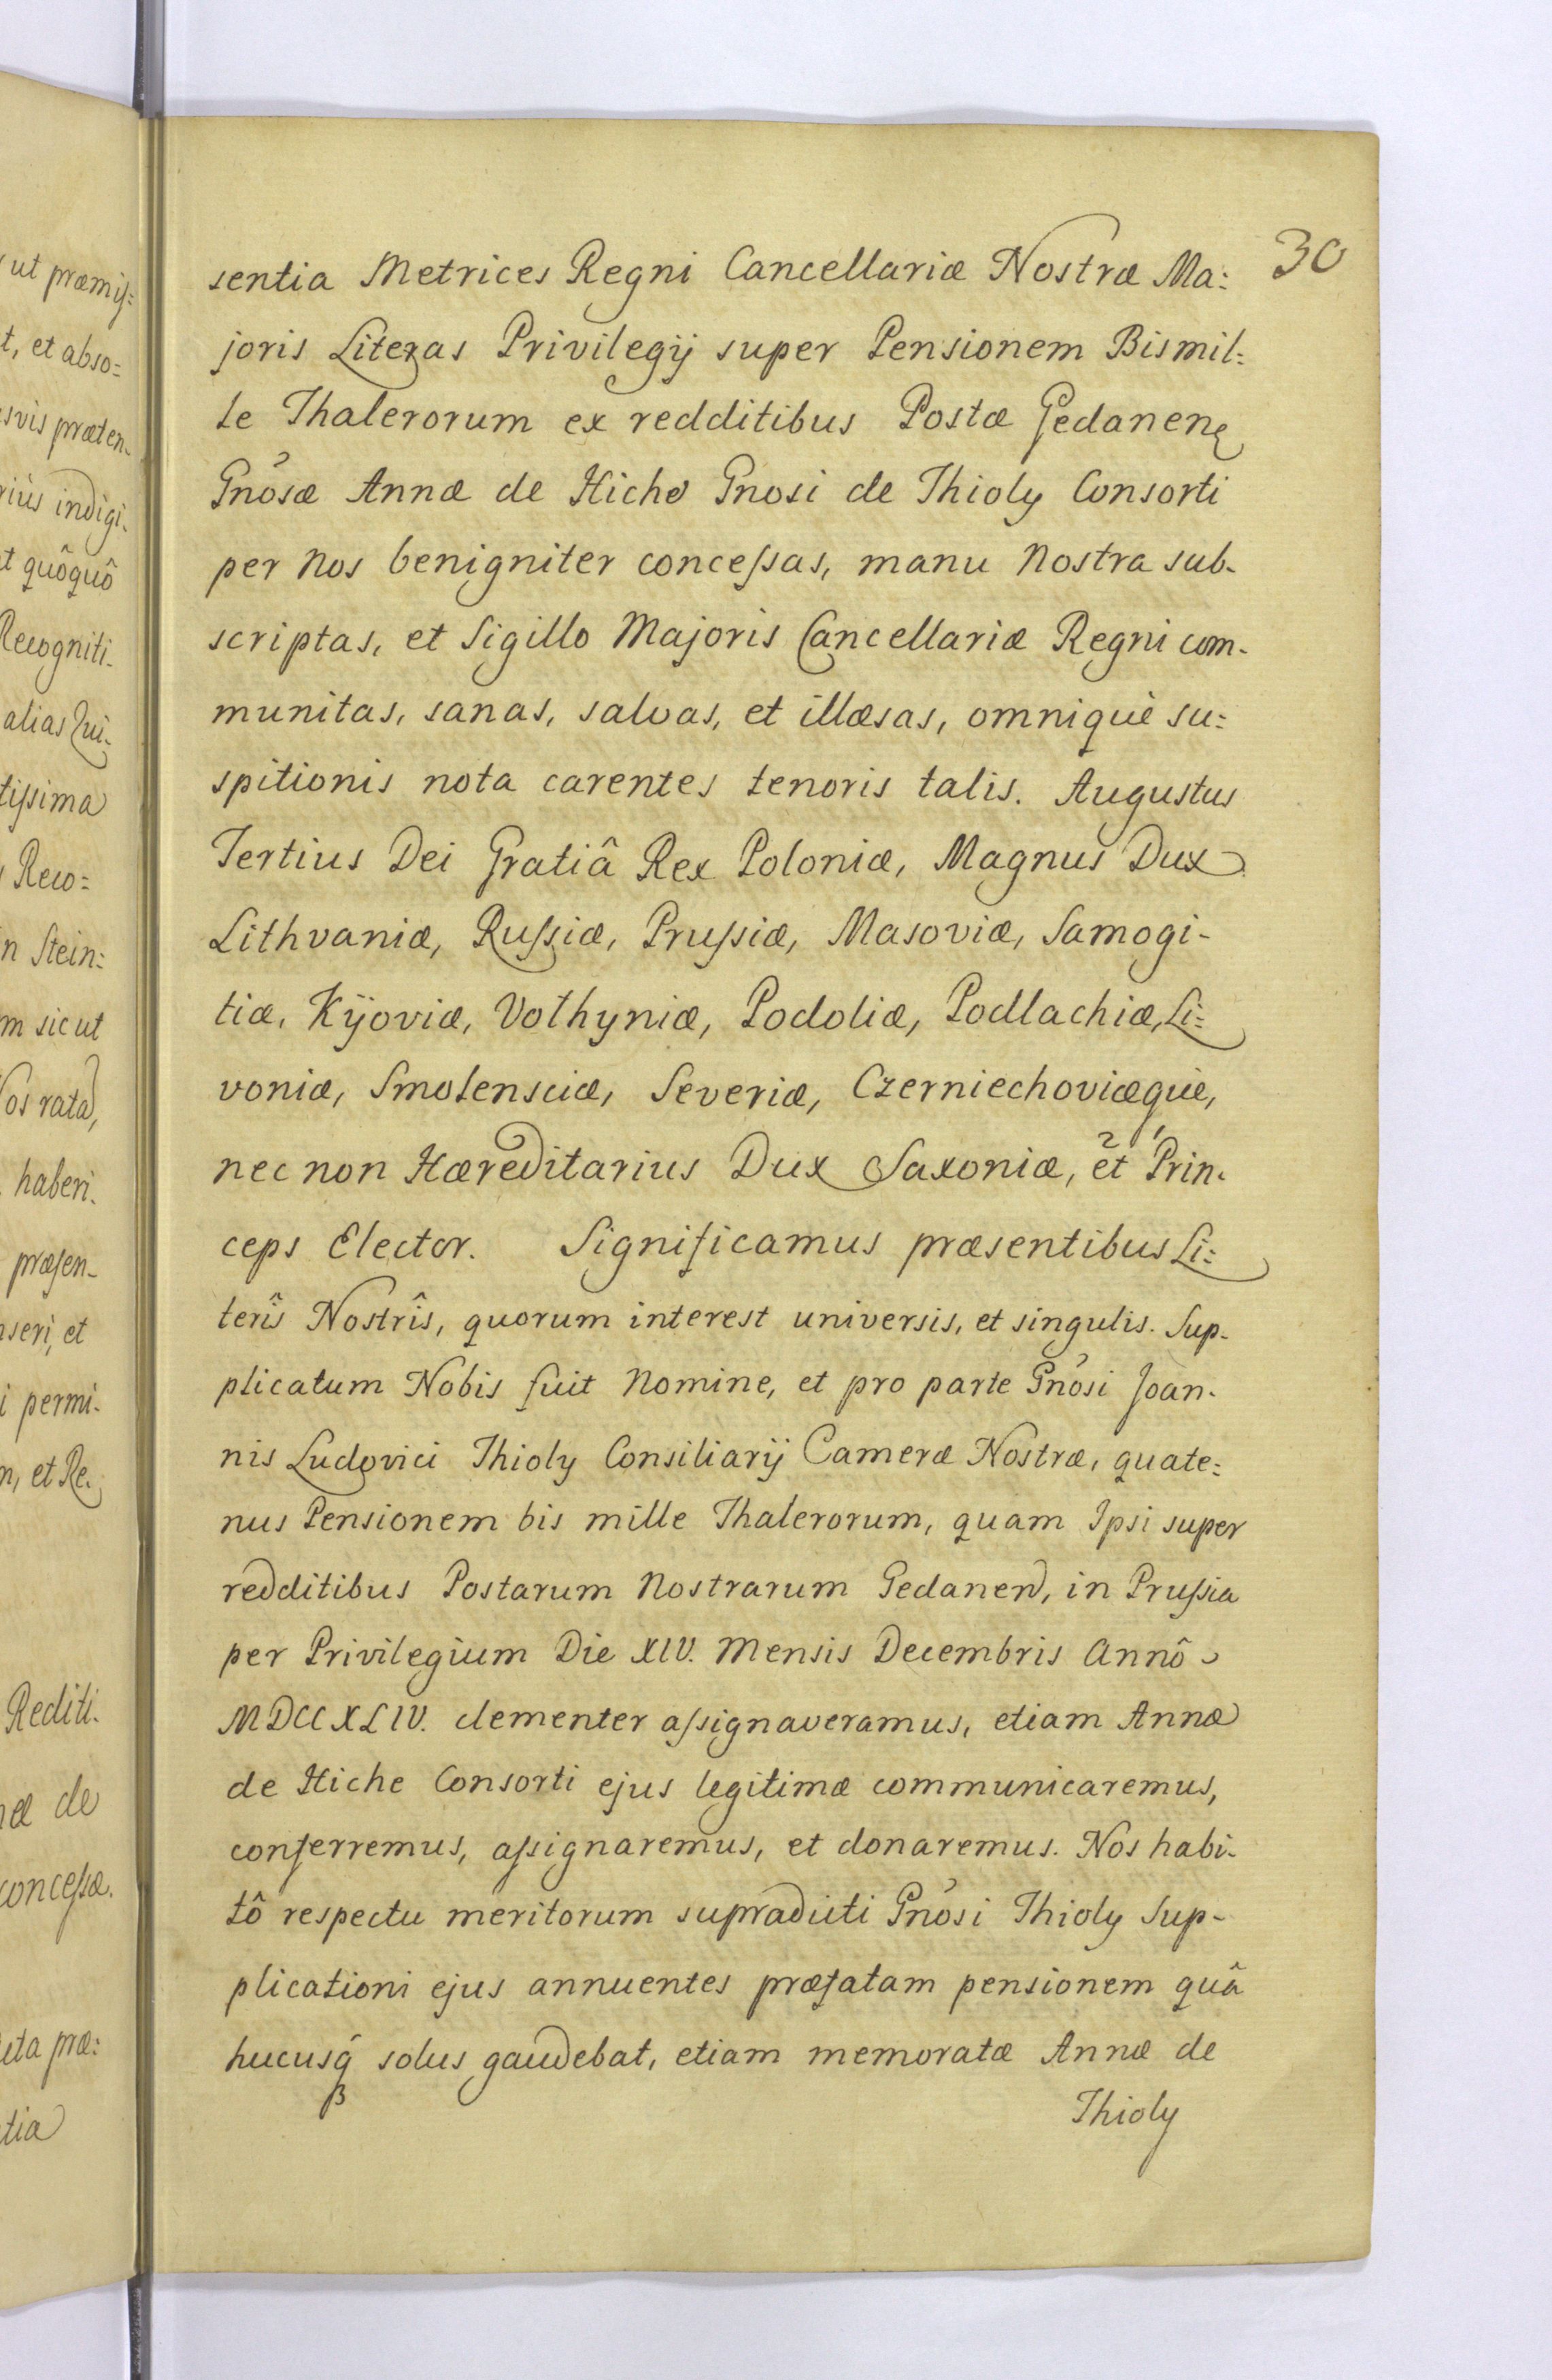 30
sentia Metrices Regni Cancellariæ Nostræ Ma:
joris Literas Privilegij super Pensionem Bismil:
le Thalerorum ex redditibus Postæ Gedanen
Gnosæ Annæ de Hiche Gnosi de Thioly Consorti
per Nos benigniter concessas, manu Nostra sub-
scriptas, et Sigillo Majoris Cancellariæ Regni com-
munitas, sanas, salvas, et illæsas, omniquè su:
spitionis nota carentes tenoris talis. Augustus
Tertius Dei Gratiâ Rex Poloniæ, Magnus Dux
Lithvaniæ, Russiæ, Prussiæ, Masoviæ, Samogi-
tiæ, Kÿoviæ, Volhyniæ, Podoliæ, Podlachiæ, Li:
voniæ, Smolensciæ, Severiæ, Czerniechoviæquè,
nec non Hæreditarius Dux Saxoniæ, et Prin-
ceps Elector. Significamus præsentibus Li:
terîs Nostrîs, quorum interest universis, et singulis. Sup-
plicatum Nobis fuit Nomine, et pro parte Gnosi Joan-
nis Ludovici Thioly Consiliarij Cameræ Nostræ, quate:
nus Pensionem bis mille Thalerorum, quam Ipsi super
redditibus Postarum Nostrarum Gedanen, in Prussia
per Privilegium Die XIV. Mensis Decembris Annô
MDCCXLIV. clementer assignaveramus, etiam Annæ
de Hiche Consorti ejus legitimæ communicaremus,
conferremus, assignaremus, et donaremus. Nos habi-
tô respectu meritorum supradicti Gnosi Thioly Sup-
plicationi ejus annuentes præfatam pensionem quâ
hucusq solus gaudebat, etiam memoratæ Annæ de
Thioly
ut præmis:
t, et abso=
svis præten-
riùs indigi-
t quôquô
Recogniti-
alias Qui-
tissima
Reco=
n Stein:
m sicut
os rata,
haberi.
præsen-
nseri, et
i permi-
n, et Re-
Rediti-
næ de
concessæ.
uta præ:
tia